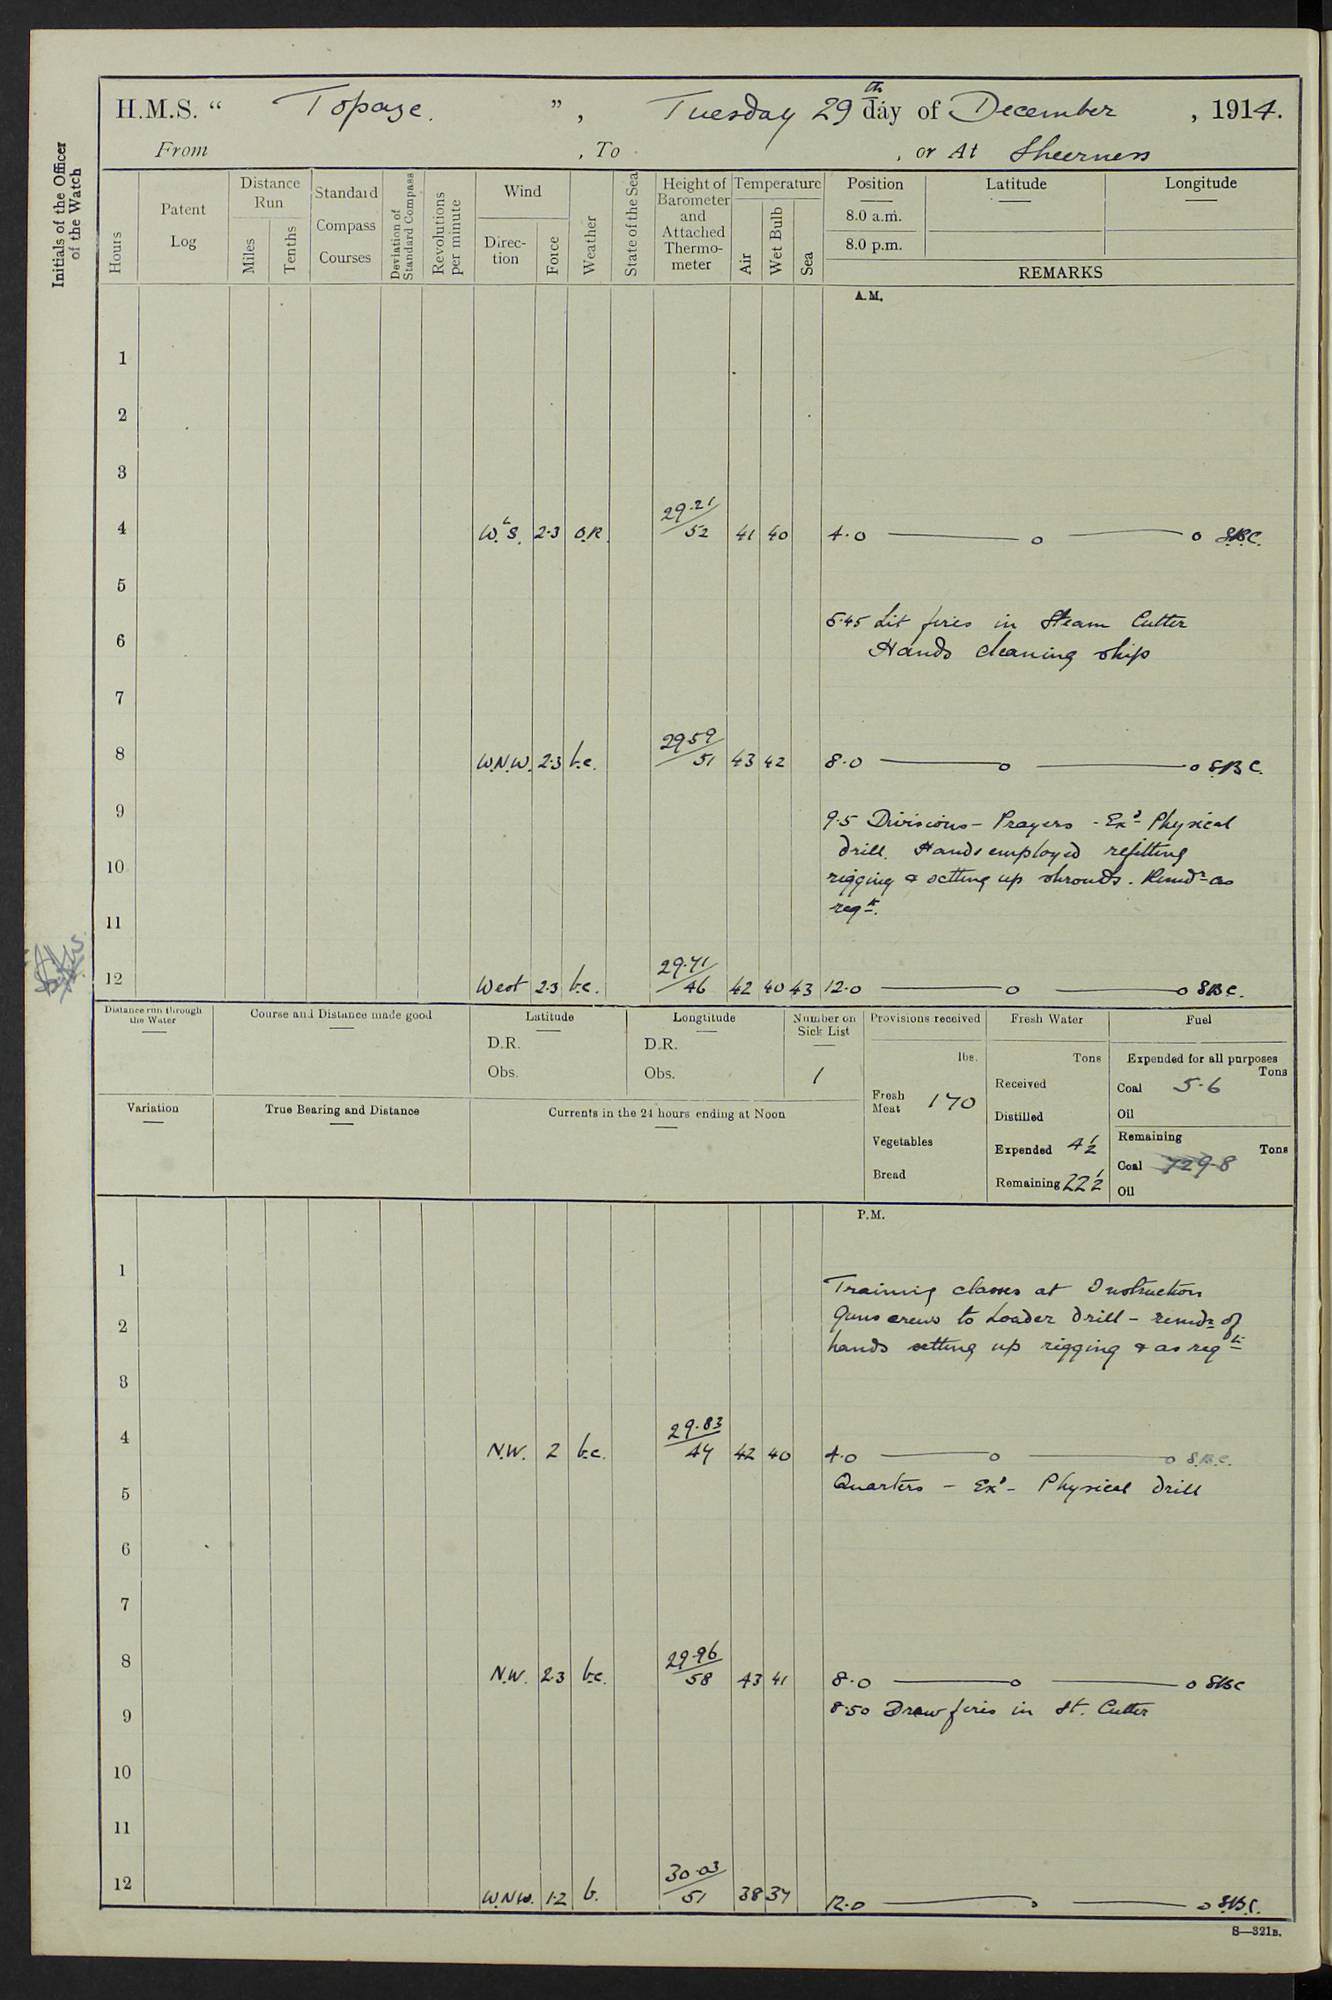 H.M.S. “ Topaze. ”, Tuesday 29th day of December, 1914.
From , To , or At Sheerness
Initials of the Officer of the Watch
Hours
Patent Log
Distance Run
Miles
Tenths
Standard Compass Courses
Deviation of Standard Compass
Revolutions per minute
Wind
Direc-tion
Force
Weather
State of the Sea
Height of Barometer and Attached Thermo-meter
Temperature
Air
Wet Bulb
Sea
Position
8.0 a.m.
8.0 p.m.
Latitude
Longitude
REMARKS
A.M.
1
2
3
4 W.bS. 2·3 O.R. 29·21/52 41 40 4·0 o o S.B.C.
5
5·45 Lit fires in Steam Cutter
6
Hands cleaning ship
7
8 W.N.W. 2·3 b.c. 29·59/51 43 42 8·0 o o S.B.C.
9
9·5 Divisions – Prayers - Exd Physical
drill. Hands employed refitting
10
rigging & setting up shrouds. Remdr as
reqd.
11
12 West 2·3 b.c. 29·71/46 42 40 43 12·0 o o SBC.
Distance run through the Water
Course and Distance made good
Latitude
D.R.
Obs.
Longtitude
D.R.
Obs.
Number on Sick List
1
Provisions received
lbs.
Fresh Meat 170
Vegetables
Bread
Fresh Water
Tons
Received
Distilled
Expended 4½
Remaining 22½
Fuel
Expended for all purposes
Tons
Coal 5·6
Oil
Remaining
Tons
Coal 729·8
Oil
Variation
True Bearing and Distance
Currents in the 24 hours ending at Noon
P.M.
1
Training classes at Instruction
2
Guns crews to Loader drill – remdr of
hands setting up rigging & as reqd
3
4 N.W. 2 b.c. 29·83/47 42 40 4·0 o o S.B.C.
Quarters – Exd – Physical drill
5
6
7
8 N.W. 2·3 b.c. 29·96/58 43 41 8·0 o o SBC
8·50 Draw fires in St. Cutter
9
10
11
12 W.N.W. 1·2 b. 30·03/51 38 37 12·0 o o S.B.C.
S—321B.